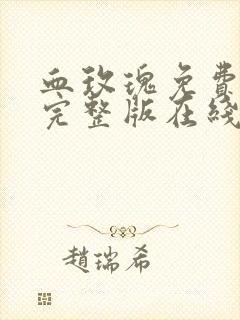 血玫瑰免費
完整版在綫
趙瑞希